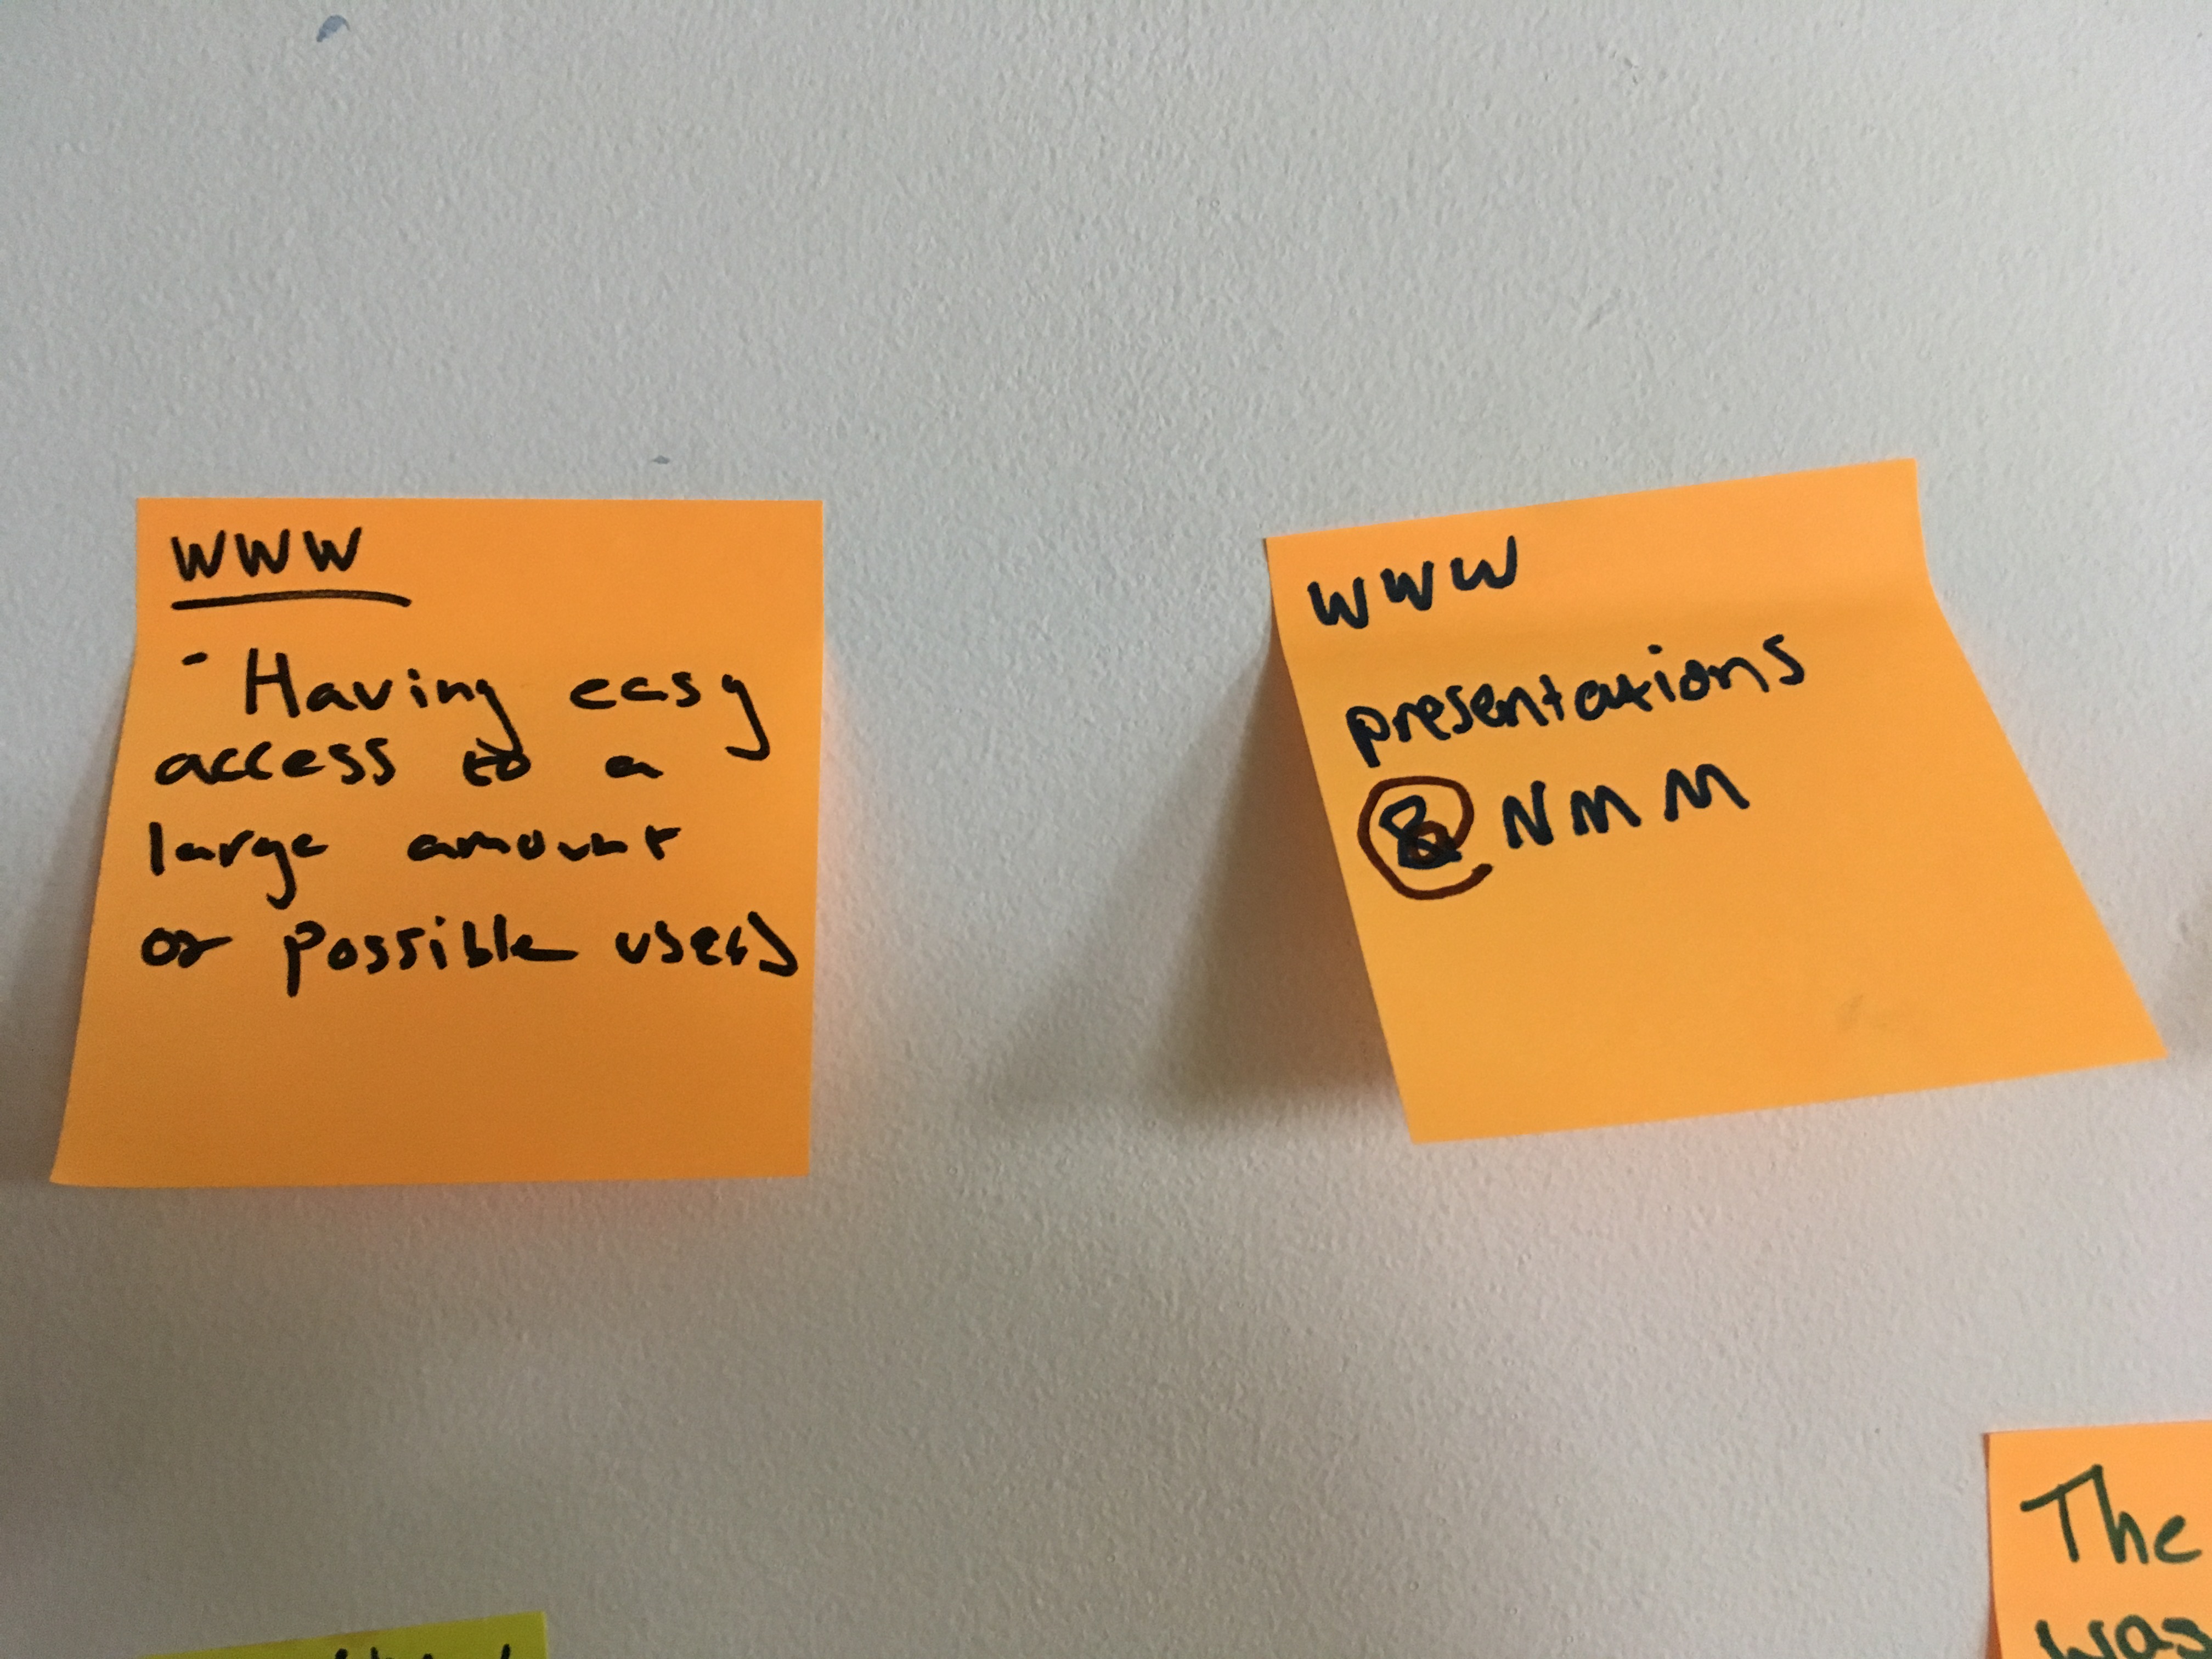 WWW
- Having easy
access to a
large amount
or possible users
WWW
presentations
@ NMM
The
was